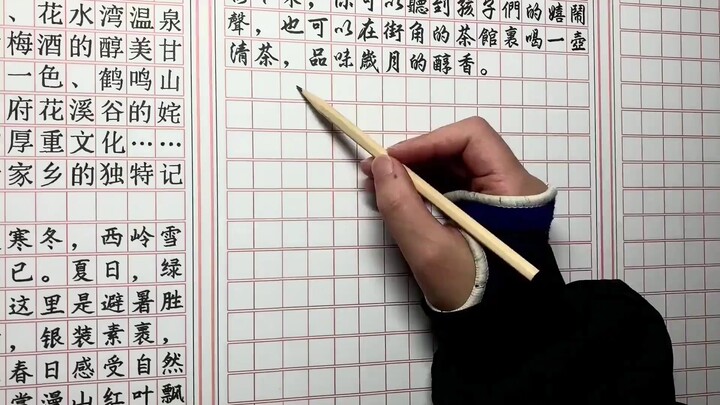 、花水湾温泉
梅酒的醇美甘
一色、鹤鸣山
府花溪谷的姹
厚重文化……
家乡的独特记
寒冬，西岭雪
已。夏日，绿
这里是避暑胜
，银装素裹，
春日感受自然
漫山红叶飘
，你可以聽到孩子們的嬉鬧
聲，也可以在街角的茶館裏喝一壺
清茶，品味歲月的醇香。